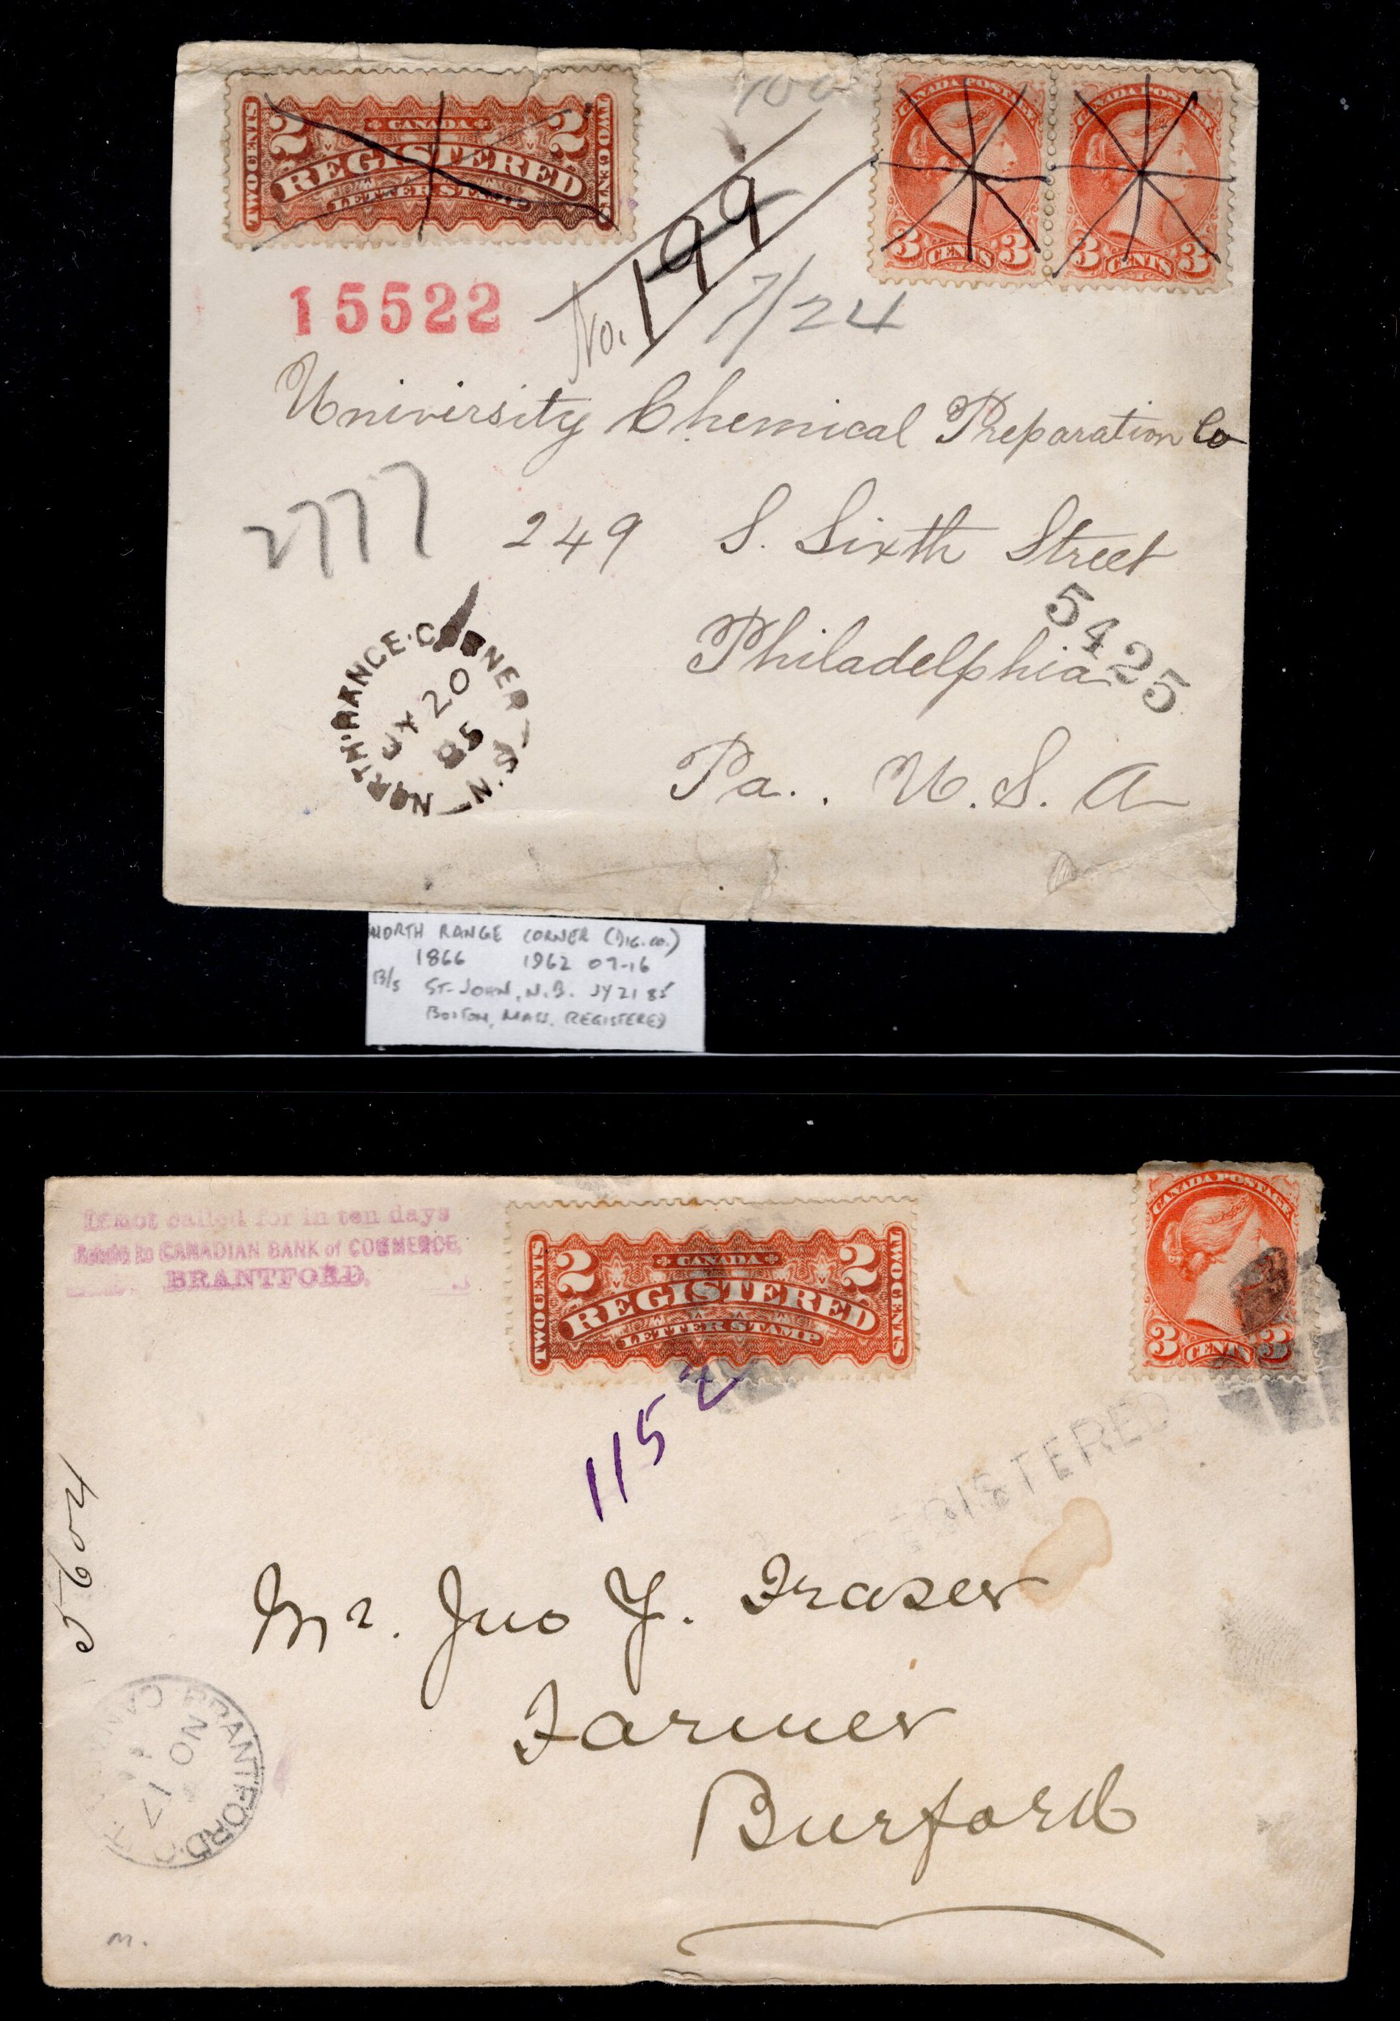 TWO CENTS 2 CANADA 2 TWO CENTS
REGISTERED
LETTER STAMP
CANADA POSTAGE
3 CENTS 3
CANADA POSTAGE
3 CENTS 3
100
No. 199
7/24
15522
University Chemical Preparation Co
2777
249 S. Sixth Street
5425
Philadelphia
Pa.. U. S. A
NORTH·RANGE·CORNER N.S.
JY 20
85
NORTH RANGE CORNER (DIG. CO.)
1866 1962 07-16
B/S ST-JOHN, N.B. JY 21 85
BOSTON, MASS. REGISTERED
If not called for in ten days
CANADIAN BANK of COMMERCE,
BRANTFORD.
TWO CENTS 2 CANADA 2 TWO CENTS
REGISTERED
LETTER STAMP
CANADA POSTAGE
3 CENTS 3
1152
REGISTERED
5604
Mr. Jno Y. Fraser
Farmer
Burford
BRANTFORD
NO 17
m.